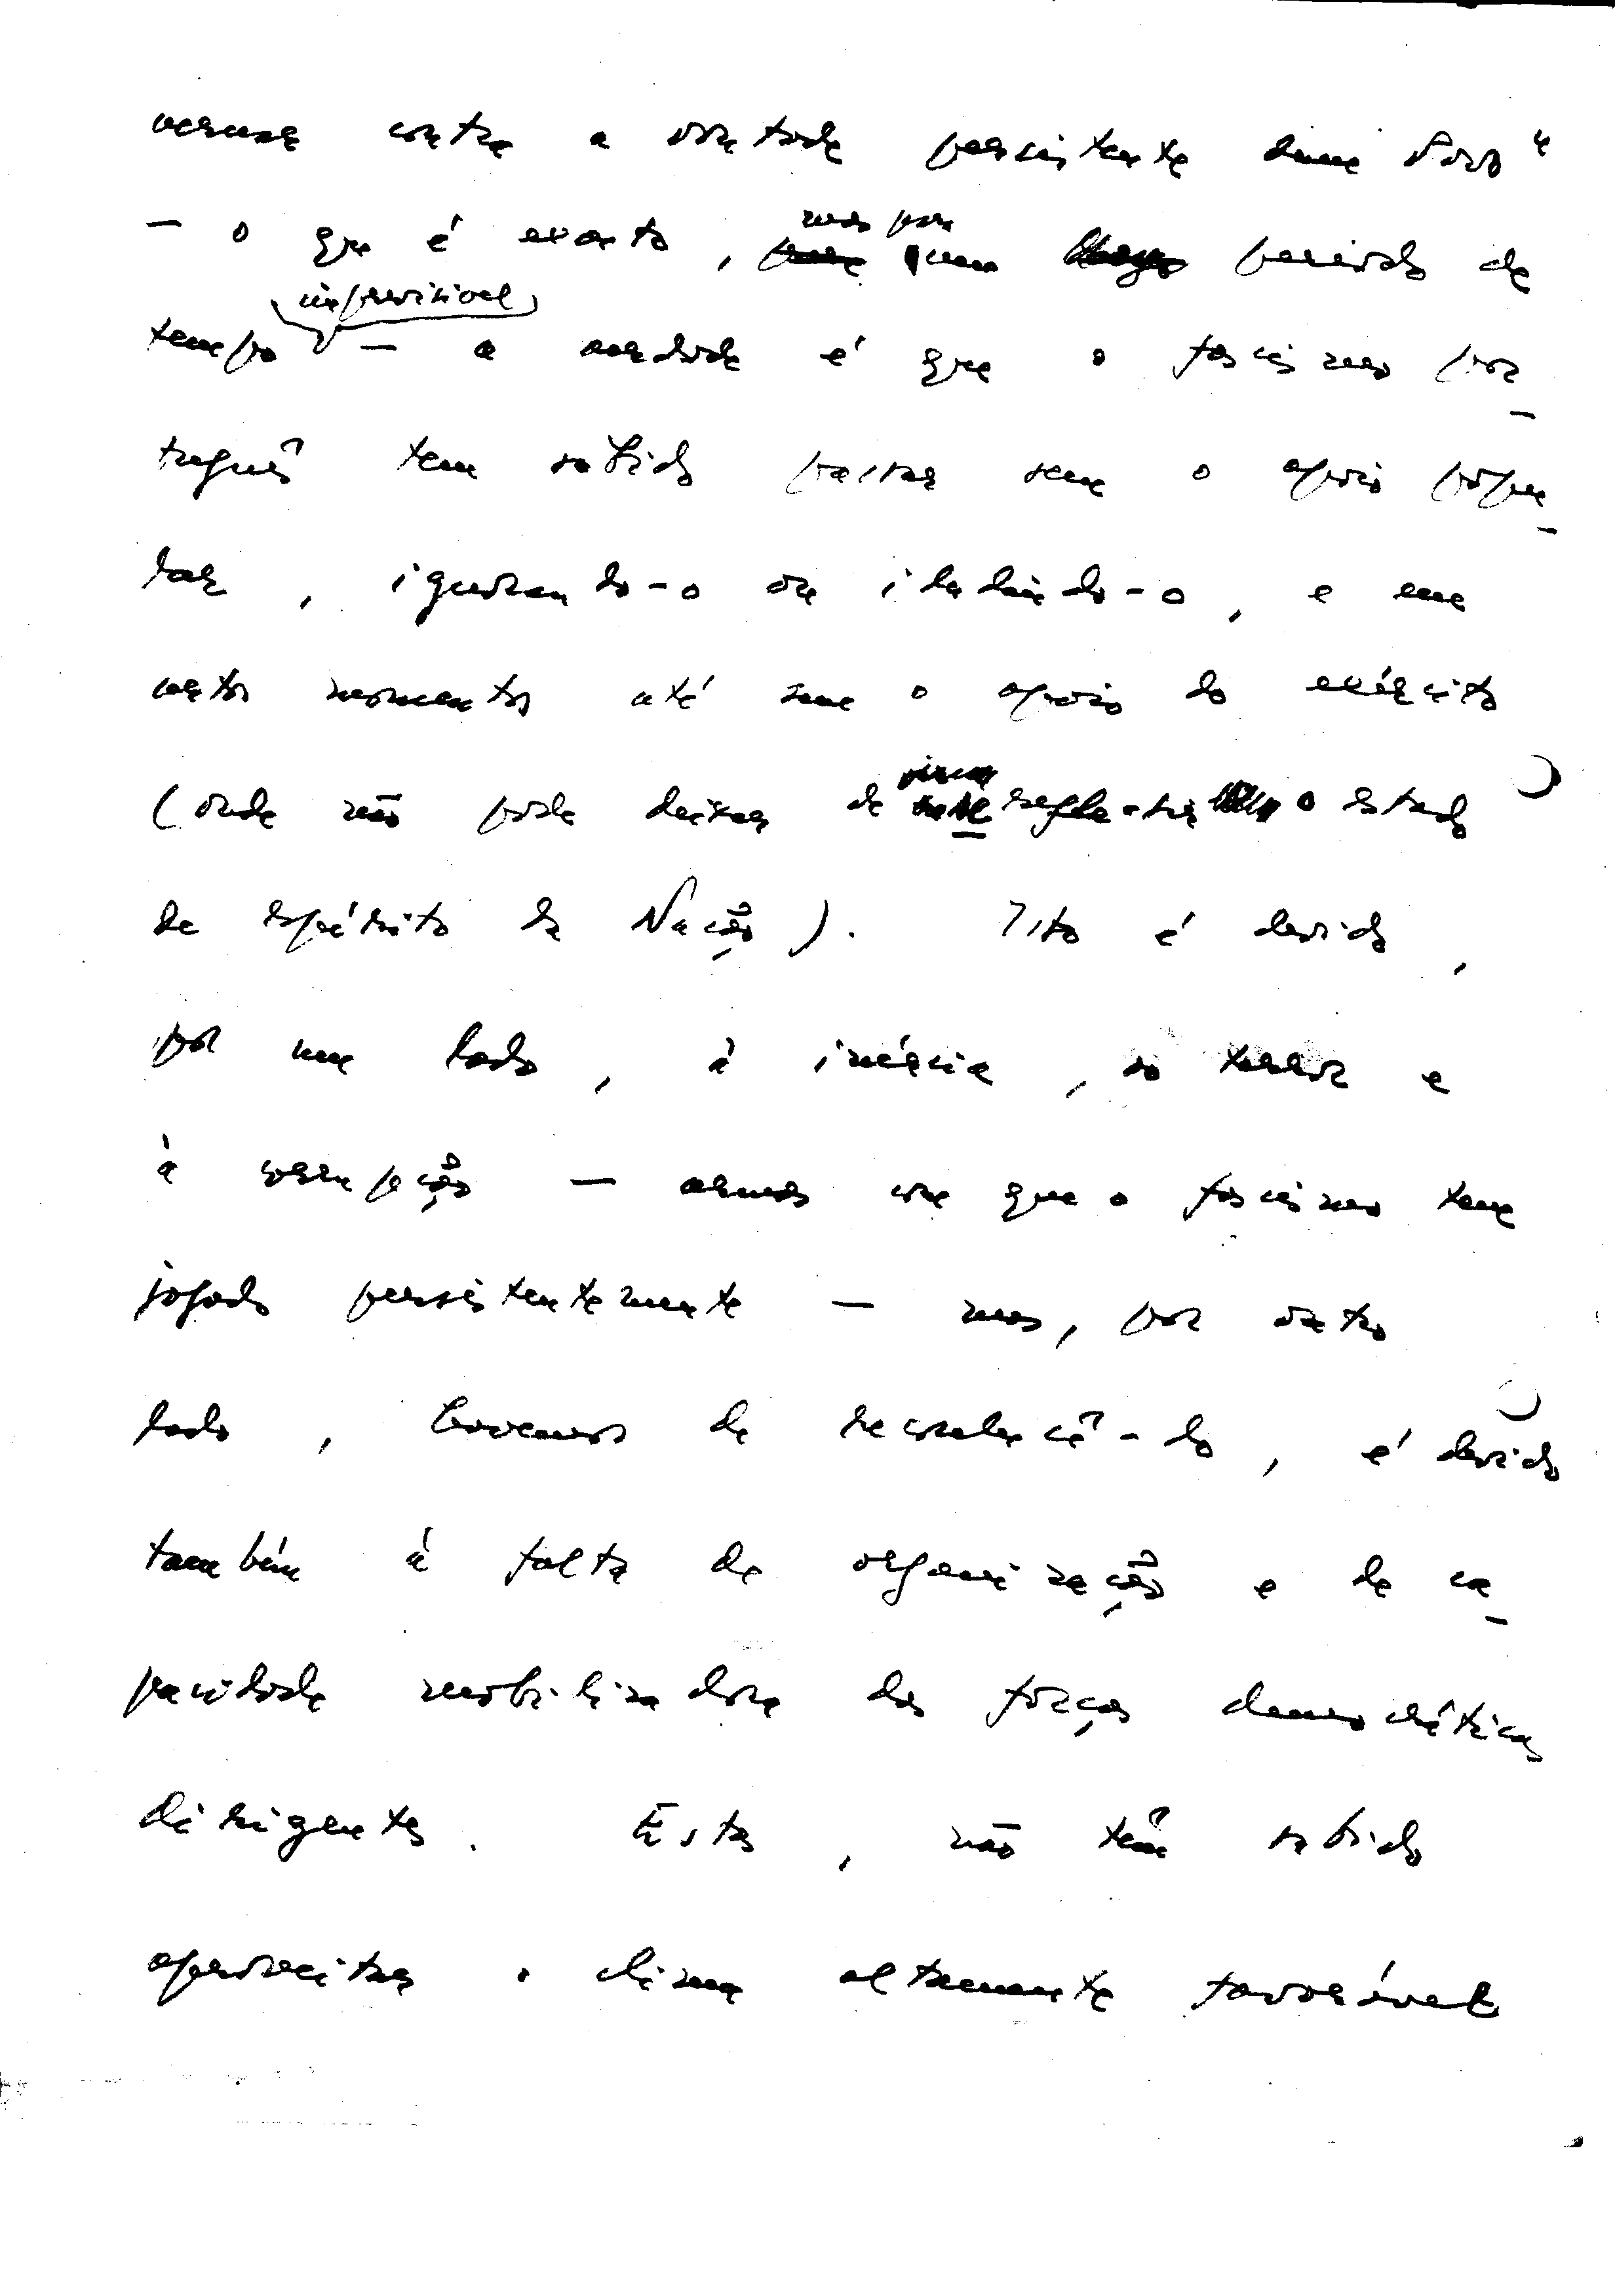 vernar contra a vontade persistente dum Povo"
— o que é exacto, mas por um período de
tempo imprevisível — a verdade é que o fascismo por-
tuguês tem sabido passar sem o apoio popu-
lar, ignorando-o ou iludindo-o, e em
certos momentos até sem o apoio do exército
(onde não pode deixar de reflectir o estado
de espírito da Nação). Isto é devido,
por um lado, à inércia, ao terror e
à corrupção — armas com que o fascismo tem
jogado persistentemente — mas, por outro
lado, havemos de reconhecê-lo, é devido
também à falta de organização e de ca-
pacidade mobilizadora das forças democráticas
dirigentes. Estas, não têm sabido
aproveitar o clima altamente favorável